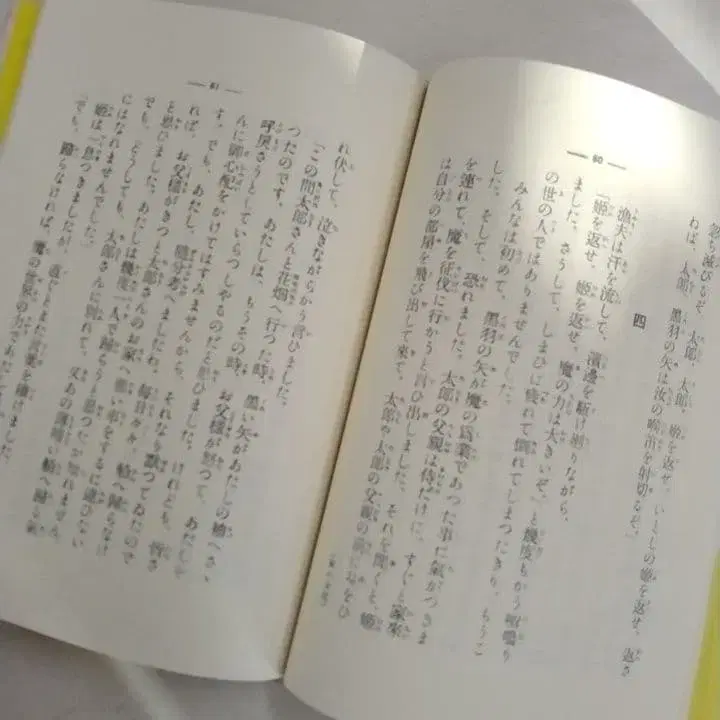 忽ち滅びるぞ、太郎、太郎、姫を返せ、いとしの姫を返せ、返さ
ねば、太郎、黒羽の矢は汝の咽笛を射切るぞ。」
四
漁夫は汗を流して、濱邊を駆け廻りながら、
「姫を返せ、姫を返せ、魔の力は大きいぞ。」と幾度もかう呶鳴り
ました。さうして、しまひに疲れて倒れてしまつたきり、もうこ
の世の人ではありませんでした。
みんなは初めて、黒羽の矢が魔の爲業であつた事に氣がつきま
した。そして、恐れました。太郎の父親は侍だけに、すぐと家來
を連れて、魔を征伐に行かうと言ひ出しました。それを聞くと、姫
は自分の部屋を飛び出して來て、太郎や太郎の父親の前に身をひ
— 60 —
れ伏して、泣きながらかう言ひました。
「この間太郎さんと花畑へ行つた時、黒い矢があたしの
つたのです。あたしは、もうその時、お父様が怒つて、あたしを
呼戻さうとしていらつしやるのだと思ひました。けれども、皆さ
んに御心配をかけてはすみませんから、それなり黙つてゐたので
す。でも、あたし、隨分考へましたわ。毎日
れば、お父様がきつと太郎さんのお家へ悪い事をするに違ひない
と思ひました。あたしは幾度一人で歸らうと思つたか知れません。
でも、どうしても、太郎さんに別れて、又あの薄暗い
にはなれませんでした。」
姫は一息つきましたが、直ぐとまた言葉を續けました。
「でも、歸らなければ、魔の世界の力であたし
— 61 —